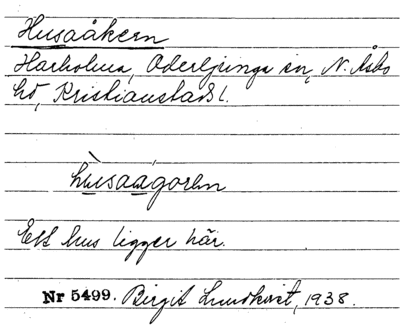 Husaåkern
Harholma, Oderljunga sn, N. Åsbo
hd, Kristianstads l.
hùsaagorḷn
Ett hus ligger här.
Nr 5499. Birgit Lundkvist, 1938.